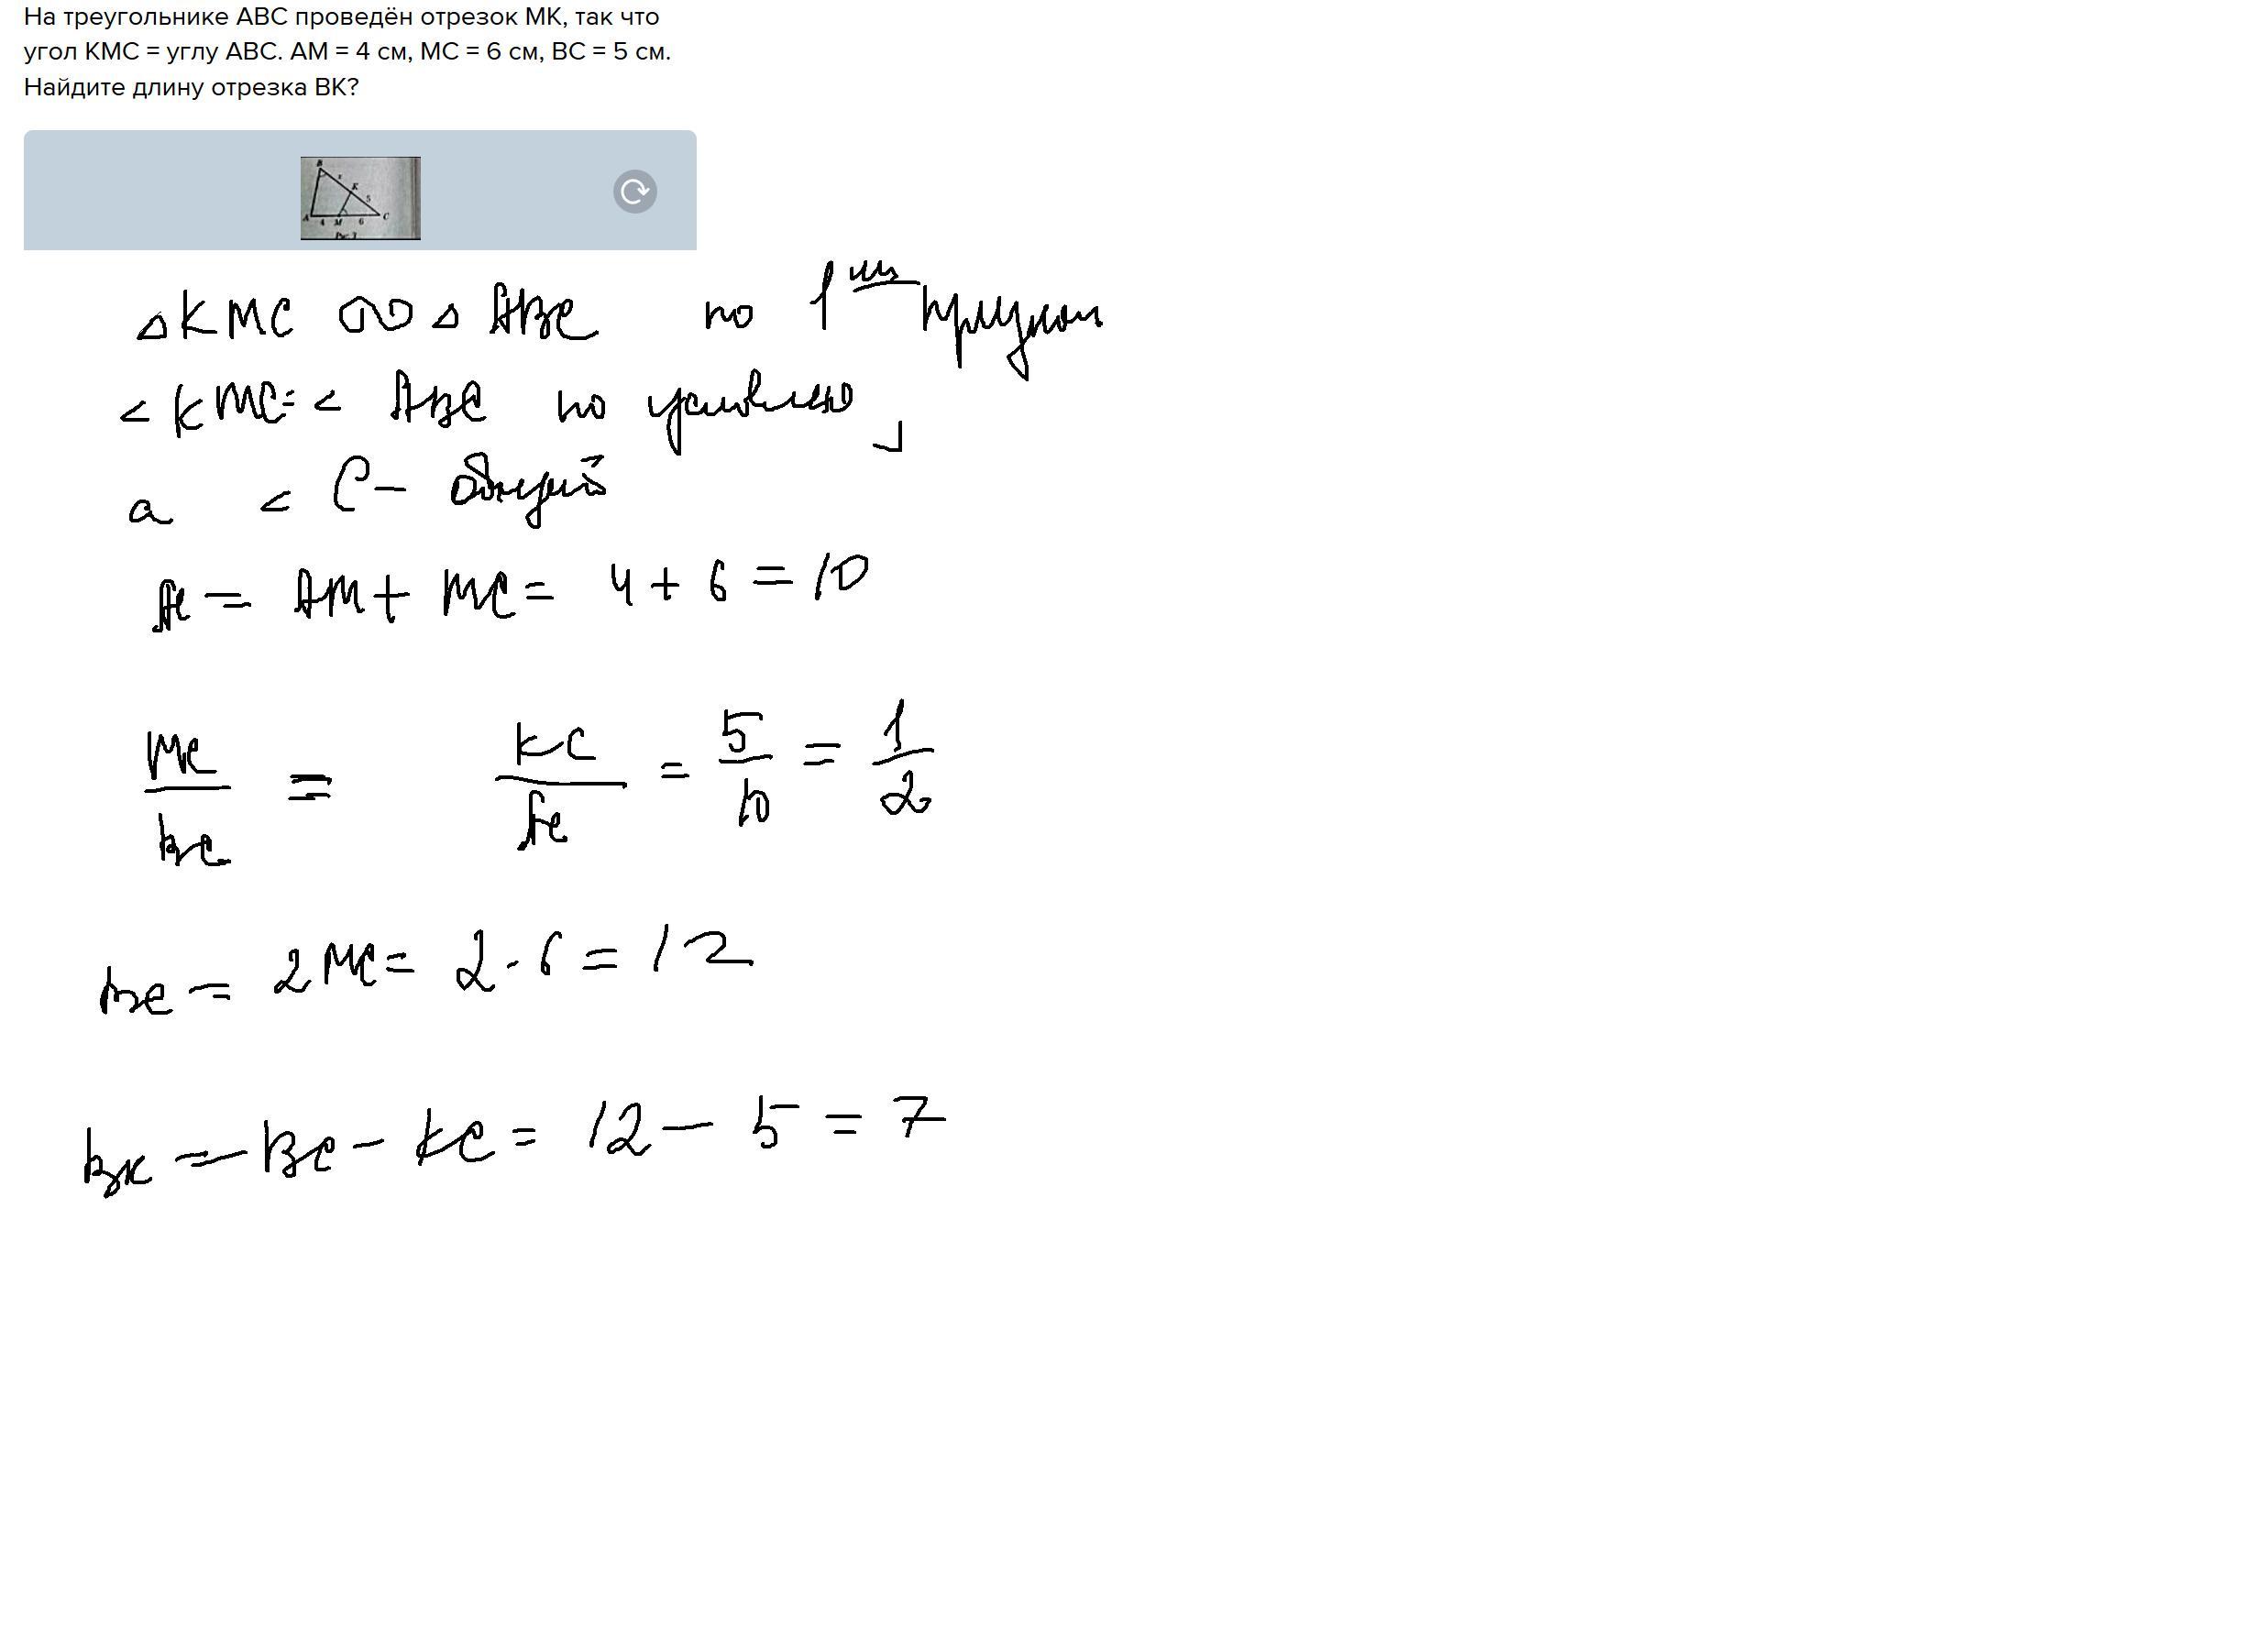 На треугольнике ABC проведён отрезок MK, так что
угол KMC = углу ABC. AM = 4 см, MC = 6 см, BC = 5 см.
Найдите длину отрезка BK?
B
x
K
5
A 4 M 6 C
△KMC ∾ △ ABC по 1
< KMC = < ABC по условию
< C – общий
AC = AM + MC = 4 + 6 = 10
MC/BC = KC/AC = 5/10 = 1/2
BC = 2MC = 2 · 6 = 12
BK = BC – KC = 12 – 5 = 7